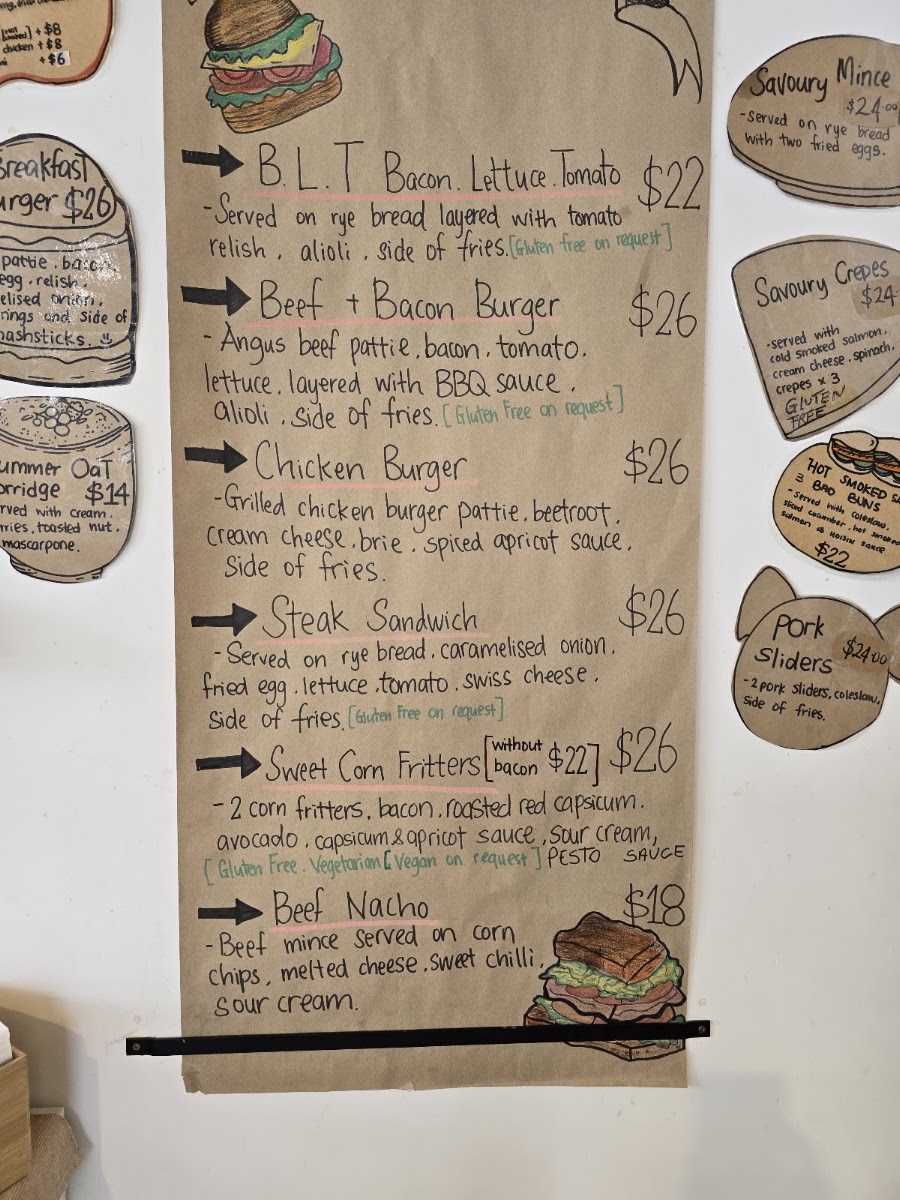 + $8
chicken + $8
+$6
Breakfast
$26
pattie . bacon
egg . relish .
onion .
and side of
hashsticks.
Oat
$14
with cream .
toasted nut .
mascarpone.
B.L.T Bacon. Lettuce. Tomato $22
- Served on rye bread layered with tomato
relish . alioli . side of fries. [Gluten free on request]
Beef + Bacon Burger $26
- Angus beef pattie . bacon . tomato .
lettuce . layered with BBQ sauce .
alioli . side of fries. [Gluten Free on request]
Chicken Burger $26
- Grilled chicken burger pattie . beetroot .
cream cheese . brie . spiced apricot sauce .
side of fries.
Steak Sandwich $26
- Served on rye bread . caramelised onion .
fried egg . lettuce . tomato . swiss cheese .
side of fries. [Gluten Free on request]
Sweet Corn Fritters [without bacon $22] $26
- 2 corn fritters, bacon . roasted red capsicum .
avocado . capsicum & apricot sauce , sour cream,
[Gluten Free . Vegetarian [Vegan on request] PESTO SAUCE
Beef Nacho $18
- Beef mince served on corn
chips, melted cheese . sweet chilli .
sour cream.
Savoury Mince
$24.00
- served on rye bread
with two fried eggs.
Savoury Crepes
$24
- served with
cold smoked salmon .
cream cheese . spinach .
crepes x 3
GLUTEN
FREE
HOT SMOKED
3 BAO BUNS
- served with coleslaw .
sliced cucumber . hot smoked
salmon & hoisin sauce
$22
Pork
Sliders $24.00
- 2 pork sliders, coleslaw,
side of fries.